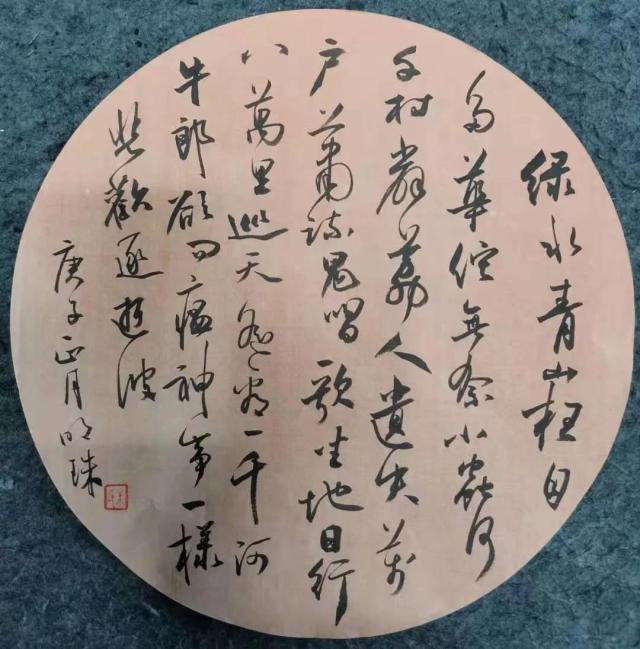 绿水青山枉自
多華佗無奈小蟲何
千村薜荔人遺矢萬
户蕭疏鬼唱歌坐地日行
八萬里巡天遥看一千河
牛郎欲问瘟神事一樣
悲歡逐逝波
庚子正月明珠